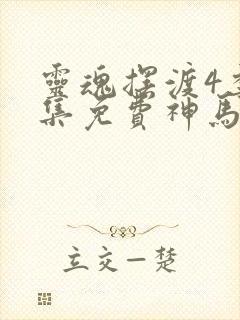 靈魂摆渡4
集免費神馬
立交一楚